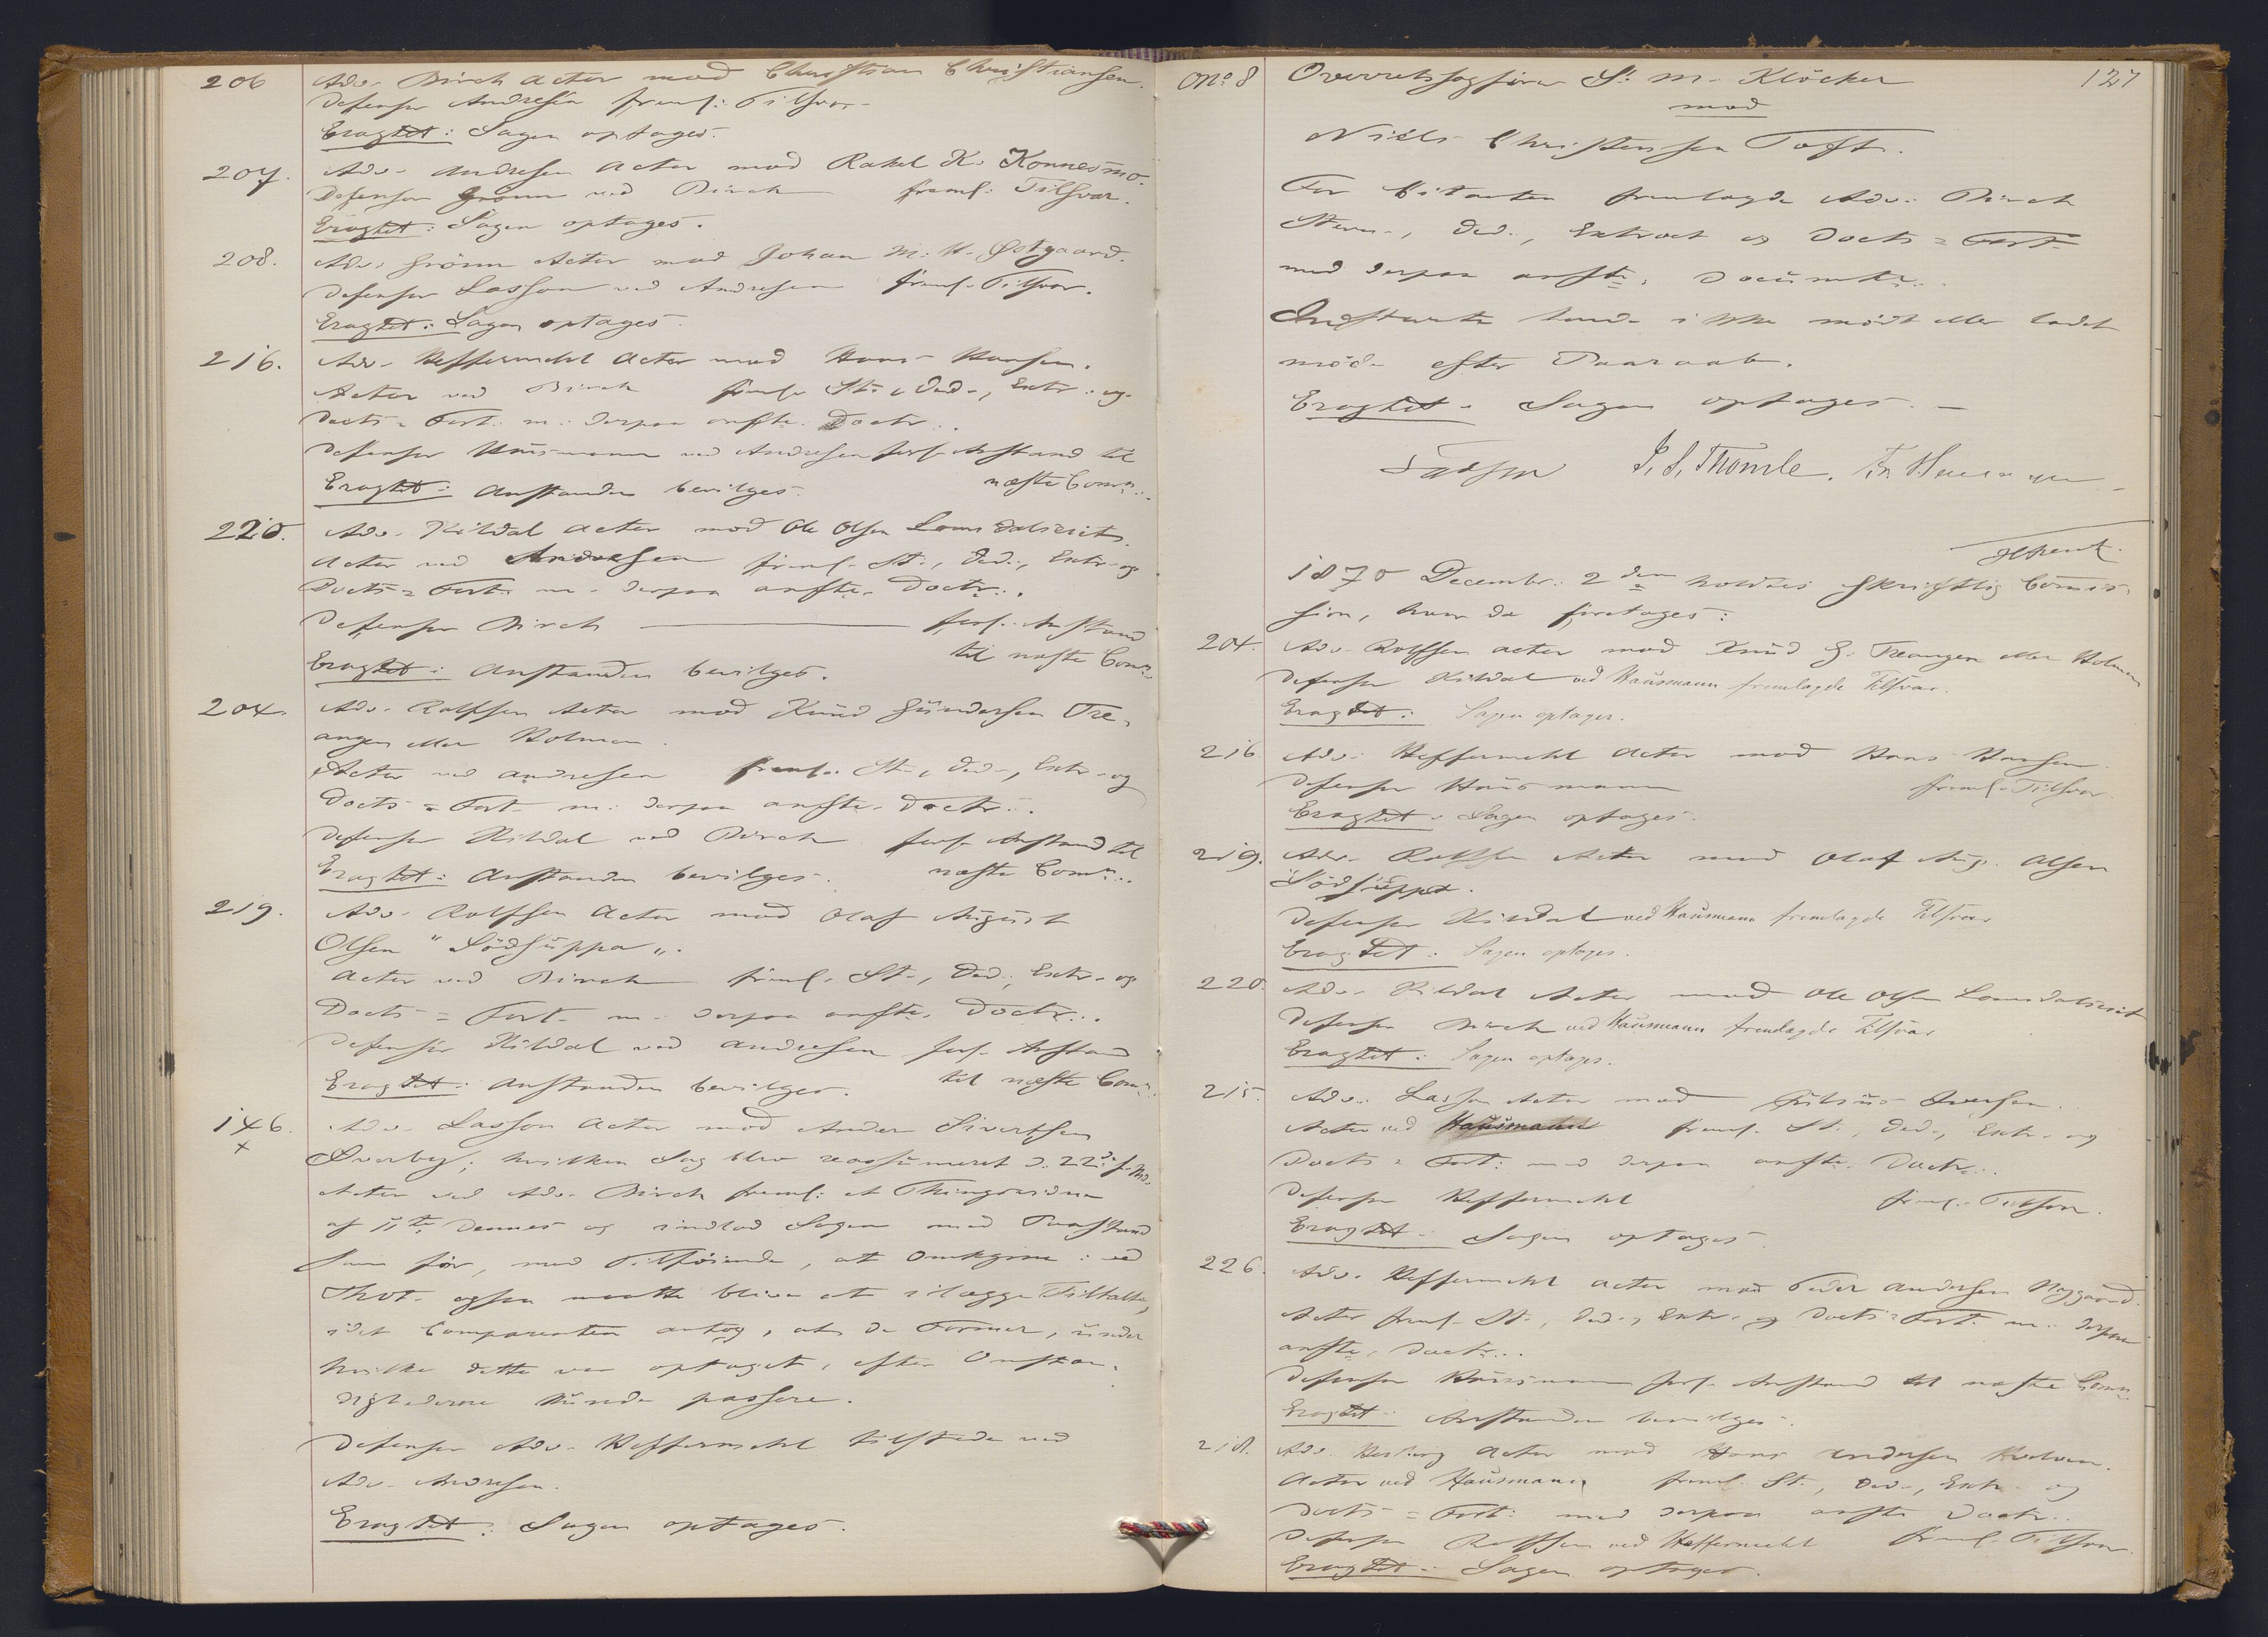 206 Adv. Birch Actor mod Christian Christiansen.
Defensor Andresen freml. Tilsvar.
Eragtet: Sagen optages.
207. Adv. Andresen Actor mod Rakel K. Konnesmo.
Defensor Grönn ved Birch freml. Tilsvar.
Eragtet: Sagen optages.
208. Adv. Grönn Actor mod Johan M. H. Østgaard.
Defensor Lasson ved Andresen freml. Tilsvar.
Eragtet: Sagen optages.
216. Adv. Heffermehl Actor mod Hans Hansen.
Actor ved Birch freml. St., Ded., Extr. og
Docts = Fort. m. derpaa anfte. Doctr..
Defensor Hausmann ved Andresen forl. Anstand til
næste Comn..
Eragtet: Anstanden bevilges.
220. Adv. Kildal Actor mod Ole Olsen Lomsdalseiet.
Actor ved Andresen freml. St., Ded., Extr. og
Docts = Fort. m. derpaa anfte. Doctr..
Defensor Birch forl. Anstand
til næste Comn.
Eragtet: Anstanden bevilges.
204. Adv. Rolfsen Actor mod Knud Gundersen Tre-
angen eller Holmen.
Actor ved Andresen freml. St., Ded., Extr. og
Docts = Fort. m. derpaa anfte. Doctr..
Defensor Kildal ved Birch forl. Anstand til
næste Comn..
Eragtet: Anstanden bevilges.
219. Adv. Rolfsen Actor mod Olaf August
Olsen "Södsuppa".
Actor ved Birch freml. St., Ded., Extr. og
Docts = Fort. m. derpaa anfte. Doctr..
Defensor Kildal ved Andresen forl. Anstand
til næste Comn.
Eragtet: Anstanden bevilges.
146. x Adv. Lasson Actor mod Anders Sivertsen
Sverby; hvilken Sag blev reassumeret d. 22de f. Md.
Actor ved Adv. Birch freml. et Thingsvidne
af 11te Dennes og indlod Sagen med Paastand
som för, med Tilföiende, at Omkgne. ved
Thvt. ogsaa maatte blive at ilægge Tiltalte,
idet Comparenten antog, at de Former, under
hvilke dette var optaget, efter Omstæn-
dighederne kunde passere.
Defensor Adv. Heffermehl tilstede ved
Adv. Andresen.
Eragtet: Sagen optages.
127
No. 8 Overretssagförer S. M. Klöcker
mod
Niels Christensen Toft.
For Citanten fremlagde Adv. Birch
Stevn., Ded., Extract og Docts = Fort.
med derpaa anfte. Documtr..
Indstevnte havde ikke mödt eller ladet
möde efter Paaraab.
Eragtet: Sagen optages.
J. S. Thomle.
1870 Decembr. 2den holdtes skriftlig Comis-
sion, hvor da foretages:
204. Adv. Rolfsen Actor mod Knud G. Treangen eller Holmen
Defensor Kildal ved Hausmann fremlagde Tilsvar.
Eragtet: Sagen optages.
216 Adv. Heffermehl Actor mod Hans Hansen.
Defensor Hausmann freml. Tilsvar.
Eragtet: Sagen optages.
219. Adv. Rolfsen Actor mod Olaf Aug. Olsen
Södsuppa.
Defensor Kildal ved Hausmann fremlagde Tilsvar
Eragtet: Sagen optages.
220. Adv. Kildal Actor mod Ole Olsen Lomsdalseiet
Defensor Birch ved Hausmann fremlagde Tilsvar
Eragtet: Sagen optages.
215. Adv. Lasson Actor mod Julius Iversen.
Actor ved Hausmann freml. St., Ded., Extr. og
Docts = Fort. med derpaa anfte. Doctr..
Defensor Heffermehl freml. Tilsvar.
Eragtet: Sagen optages.
226. Adv. Heffermehl Actor mod Peder Andersen Myggaard.
Actor freml. St., Ded., Extr. og Docts = Fort. m. derpaa
anfte. Doctr..
Defensor Hausmann forl. Anstand til næste Comn.
Eragtet: Anstanden bevilges.
218. Adv. Actor mod Hans Andersen
Actor ved Hausmann freml. St., Ded., Extr. og
Docts = Fort. med derpaa anfte Doctr..
Defensor Rolfsen ved Heffermehl freml. Tilsvar.
Eragtet: Sagen optages.